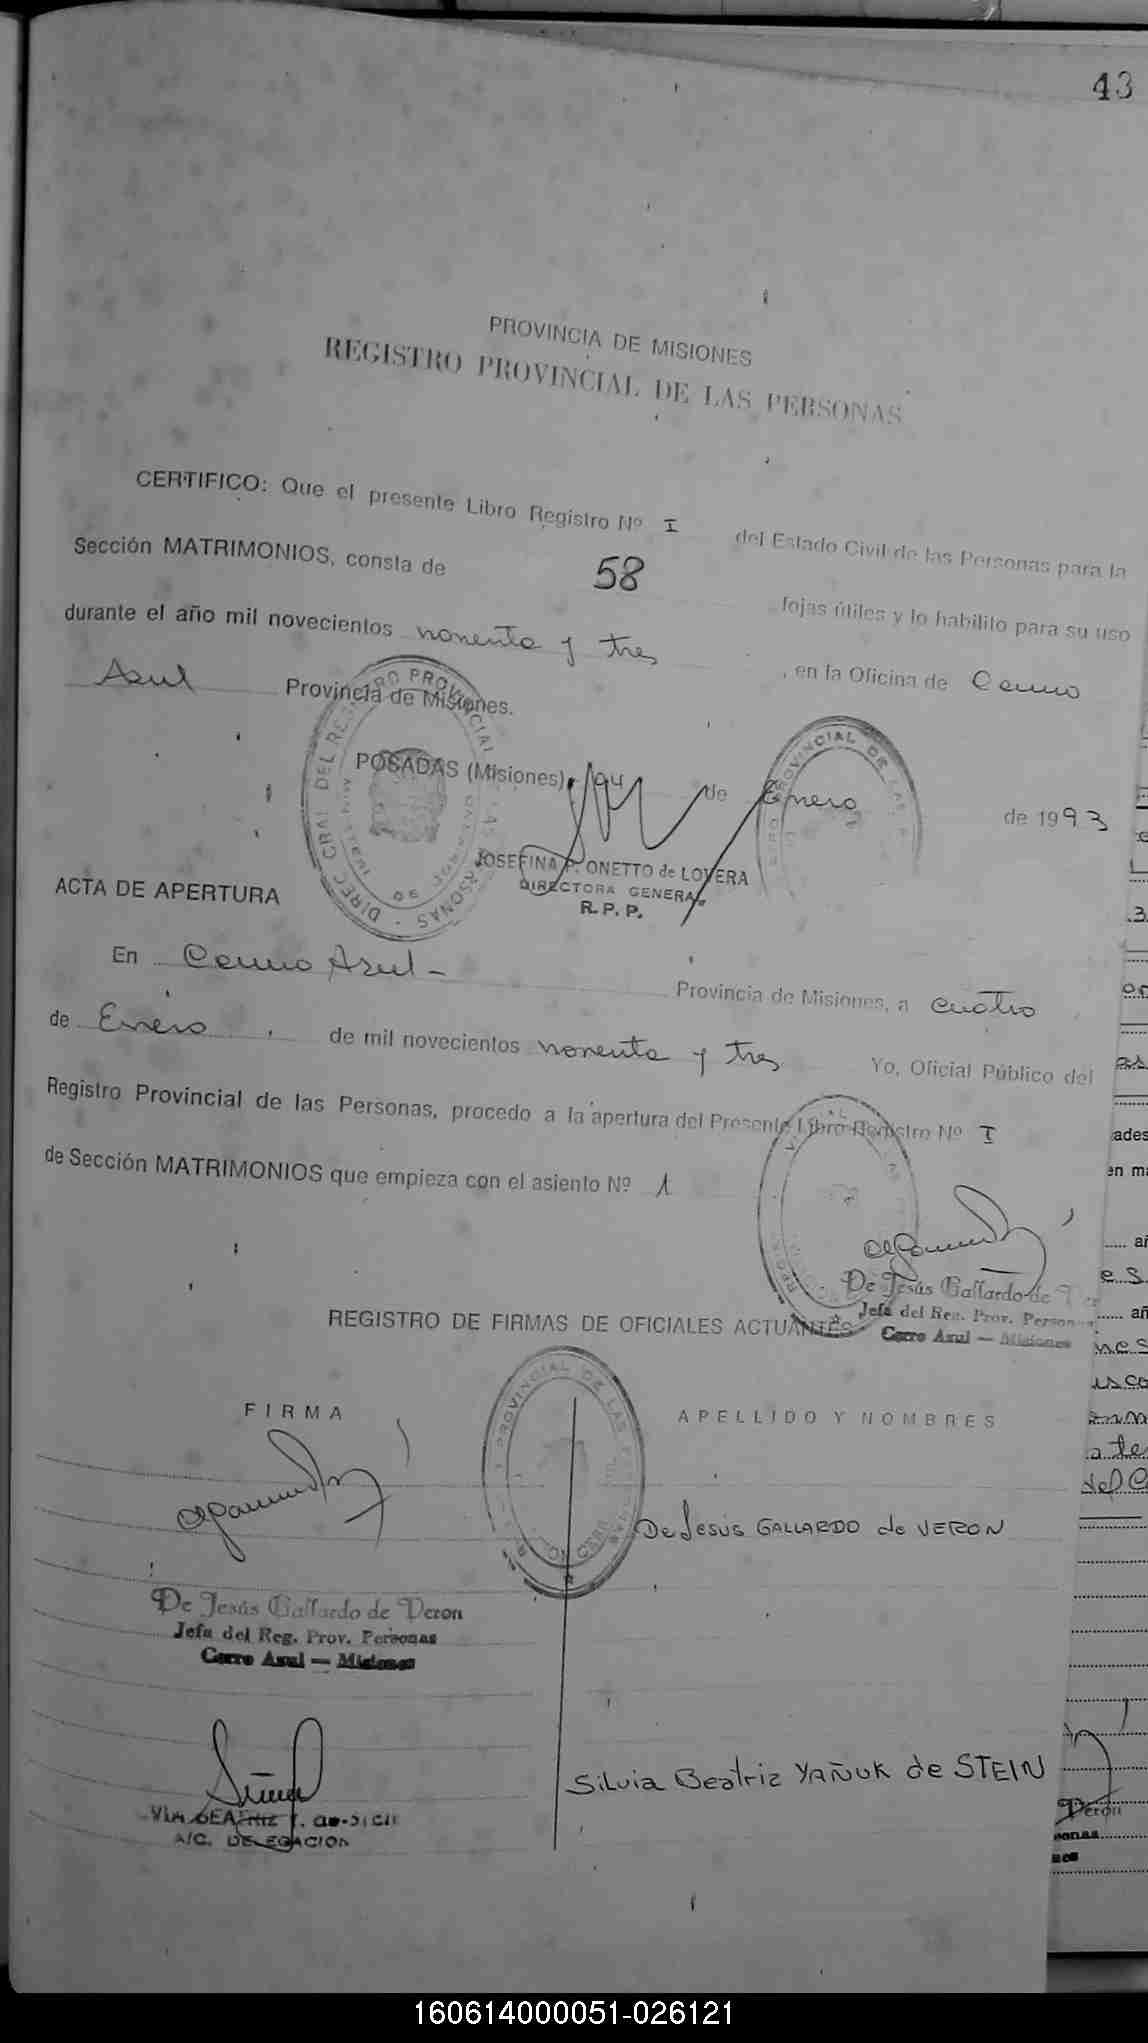 43
PROVINCIA DE MISIONES
REGISTRO PROVINCIAL DE LAS PERSONAS
CERTIFICO: Que el presente Libro Registro Nº I del Estado Civil de las Personas para la
Sección MATRIMONIOS, consta de 58 fojas útiles y lo habilito para su uso
durante el año mil novecientos noventa y tres, en la Oficina de Cerro
Azul Provincia de Misiones.
POSADAS (Misiones), 04 de Enero de 1993
JOSEFINA P. ONETTO de LOVERA
DIRECTORA GENERAL
R. P. P.
ACTA DE APERTURA
En Cerro Azul - Provincia de Misiones, a cuatro
de Enero, de mil novecientos noventa y tres Yo, Oficial Público del
Registro Provincial de las Personas, procedo a la apertura del Presente Libro Registro Nº I
de Sección MATRIMONIOS que empieza con el asiento Nº 1
De Jesús Gallardo de Ver
Jefa del Reg. Prov. Personas
Cerro Azul — Misiones
REGISTRO DE FIRMAS DE OFICIALES ACTUANTES
FIRMA APELLIDO Y NOMBRES
De Jesús GALLARDO de VERON
De Jesús Gallardo de Veron
Jefa del Reg. Prov. Personas
Cerro Azul — Misiones
Silvia Beatriz YAÑUK de STEIN
A/C. DELEGACION
160614000051-026121